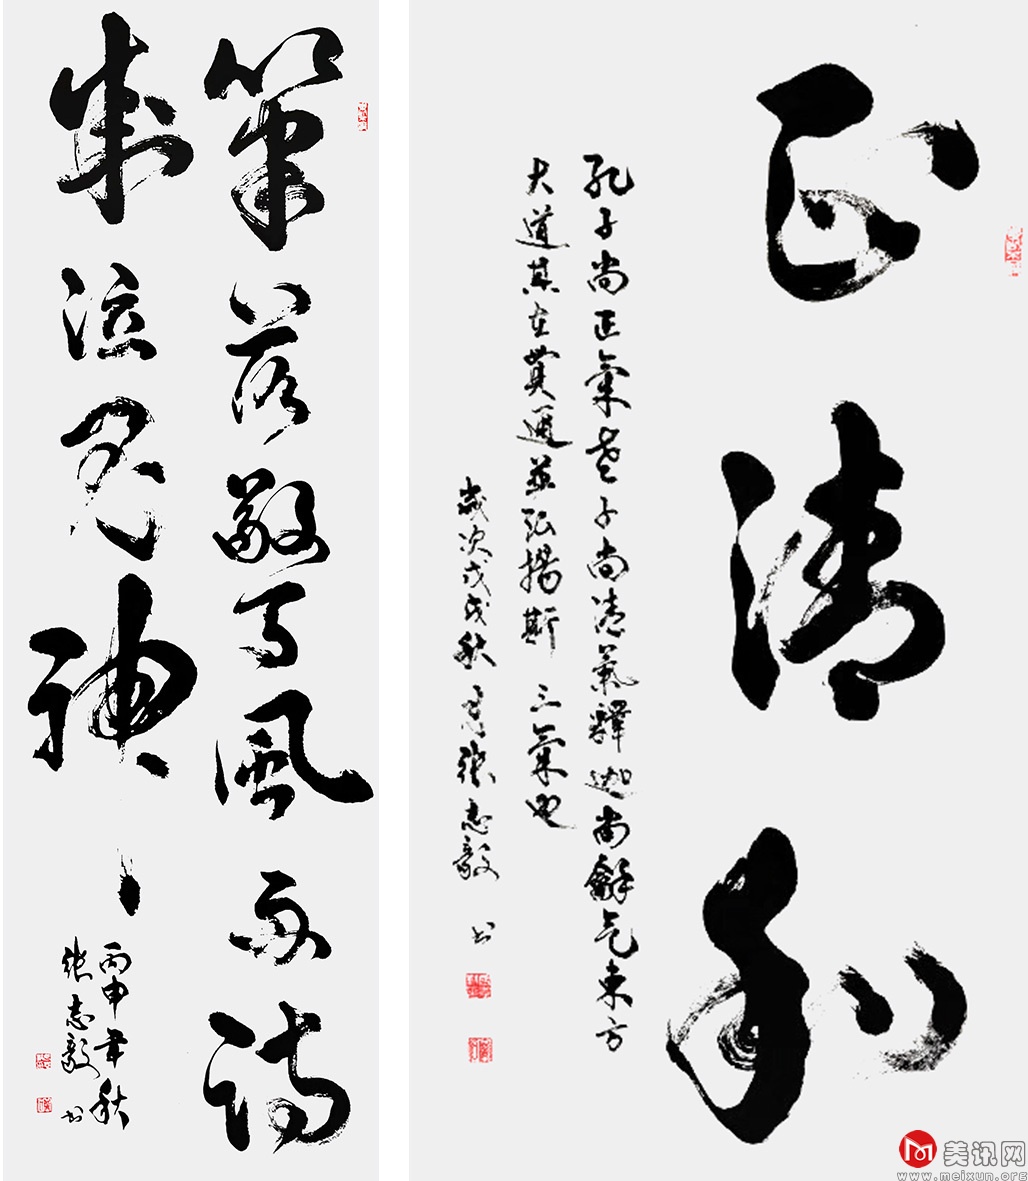 筆落驚風雨詩
成泣鬼神
丙申年秋
張志毅书
正清和
孔子尚正氣老子尚清氣釋迦尚龢气東方
大道其在貫通並弘揚斯三氣也
歲次戊戌秋張志毅书
美讯网
www.meixun.org